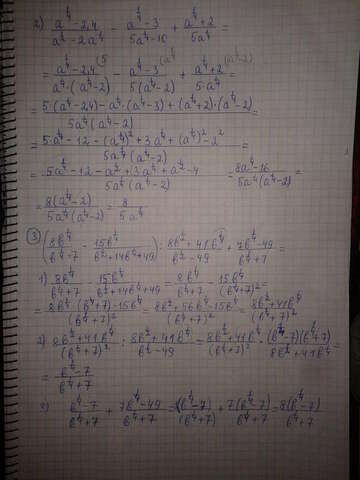 2) (a^¼ - 2,4)/(a^½ - 2a^¼) - (a^¼ - 3)/(5a^¼ - 10) + (a^¼ + 2)/(5a^¼) =
= (a^¼ - 2,4)/(a^¼ · (a^¼ - 2)) - (a^¼ - 3)/(5(a^¼ - 2)) + (a^¼ + 2)/(5·a^¼) =
= (5(a^¼ - 2,4) - a^¼ · (a^¼ - 3) + (a^¼ + 2)·(a^¼ - 2))/(5a^¼(a^¼ - 2)) =
= (5·a^¼ - 12 - (a^¼)² + 3a^¼ + (a^¼)² - 2²)/(5a^¼(a^¼ - 2)) =
= (5a^¼ - 12 - a^½ + 3a^¼ + a^½ - 4)/(5a^¼(a^¼ - 2)) = (8a^¼ - 16)/(5a^¼(a^¼ - 2)) =
= 8(a^¼ - 2)/(5a^¼(a^¼ - 2)) = 8/(5a^¼)
3) (8b^¼/(b^¼ + 7) - 15b^¼/(b^½ + 14b^¼ + 49)) : (8b^½ + 41b^¼)/(b^½ - 49) + (7b^¼ - 49)/(b^¼ + 7) =
1) 8b^¼/(b^¼ + 7) - 15b^¼/(b^½ + 14b^¼ + 49) = 8b^¼/(b^¼ + 7) - 15b^¼/(b^¼ + 7)² =
= (8b^¼ · (b^¼ + 7) - 15b^¼)/(b^¼ + 7)² = (8b^½ + 56b^¼ - 15b^¼)/(b^¼ + 7)² = (8b^½ + 41b^¼)/(b^¼ + 7)²
2) (8b^½ + 41b^¼)/(b^¼ + 7)² : (8b^½ + 41b^¼)/(b^½ - 49) = (8b^½ + 41b^¼)/(b^¼ + 7)² · (b^¼ - 7)(b^¼ + 7)/(8b^½ + 41b^¼) =
= (b^¼ - 7)/(b^¼ + 7)
(b^¼ - 7)/(b^¼ + 7) + (7b^¼ - 49)/(b^¼ + 7) = (b^¼ - 7)/(b^¼ + 7) + 7(b^¼ - 7)/(b^¼ + 7) = 8(b^¼ - 7)/(b^¼ + 7)